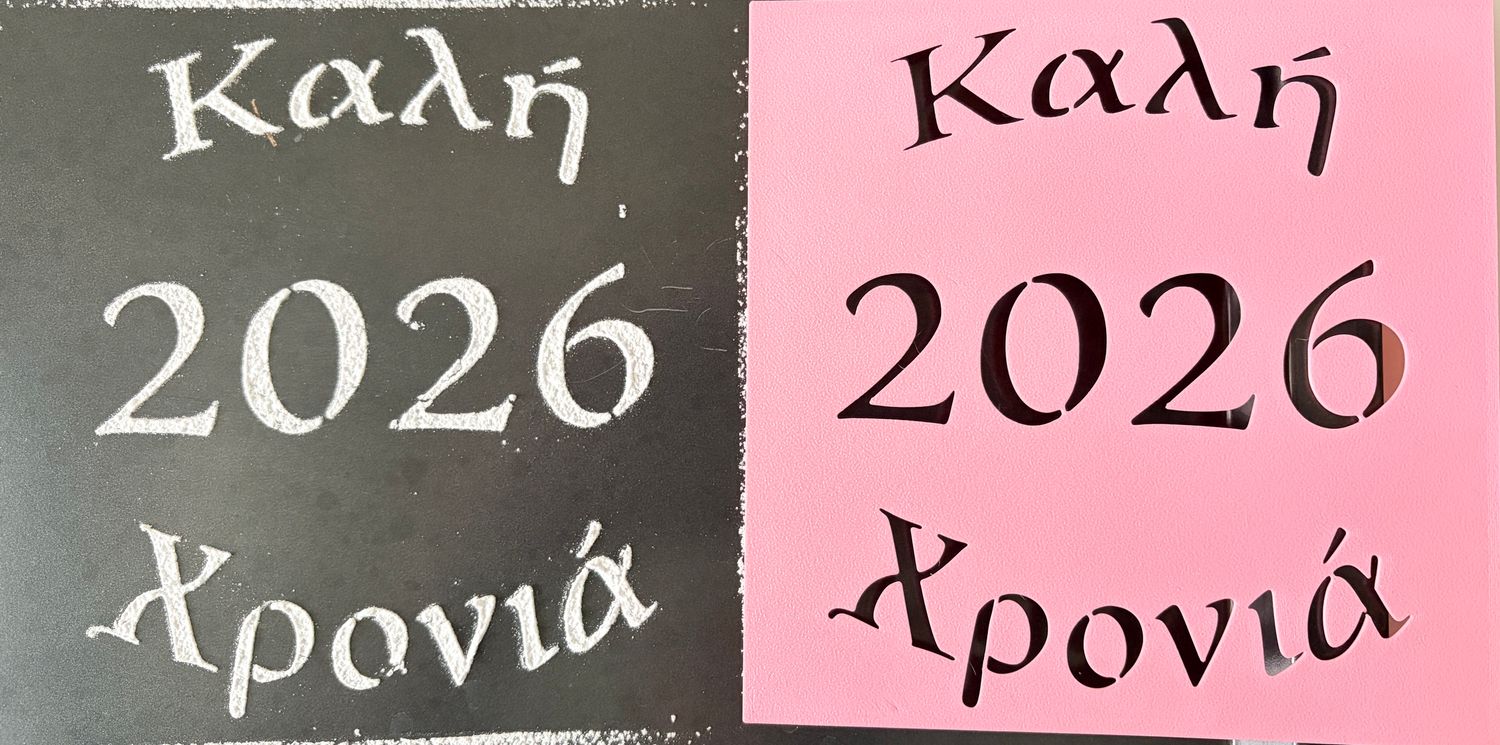 Καλή
2026
Χρονιά
Καλή
2026
Χρονιά